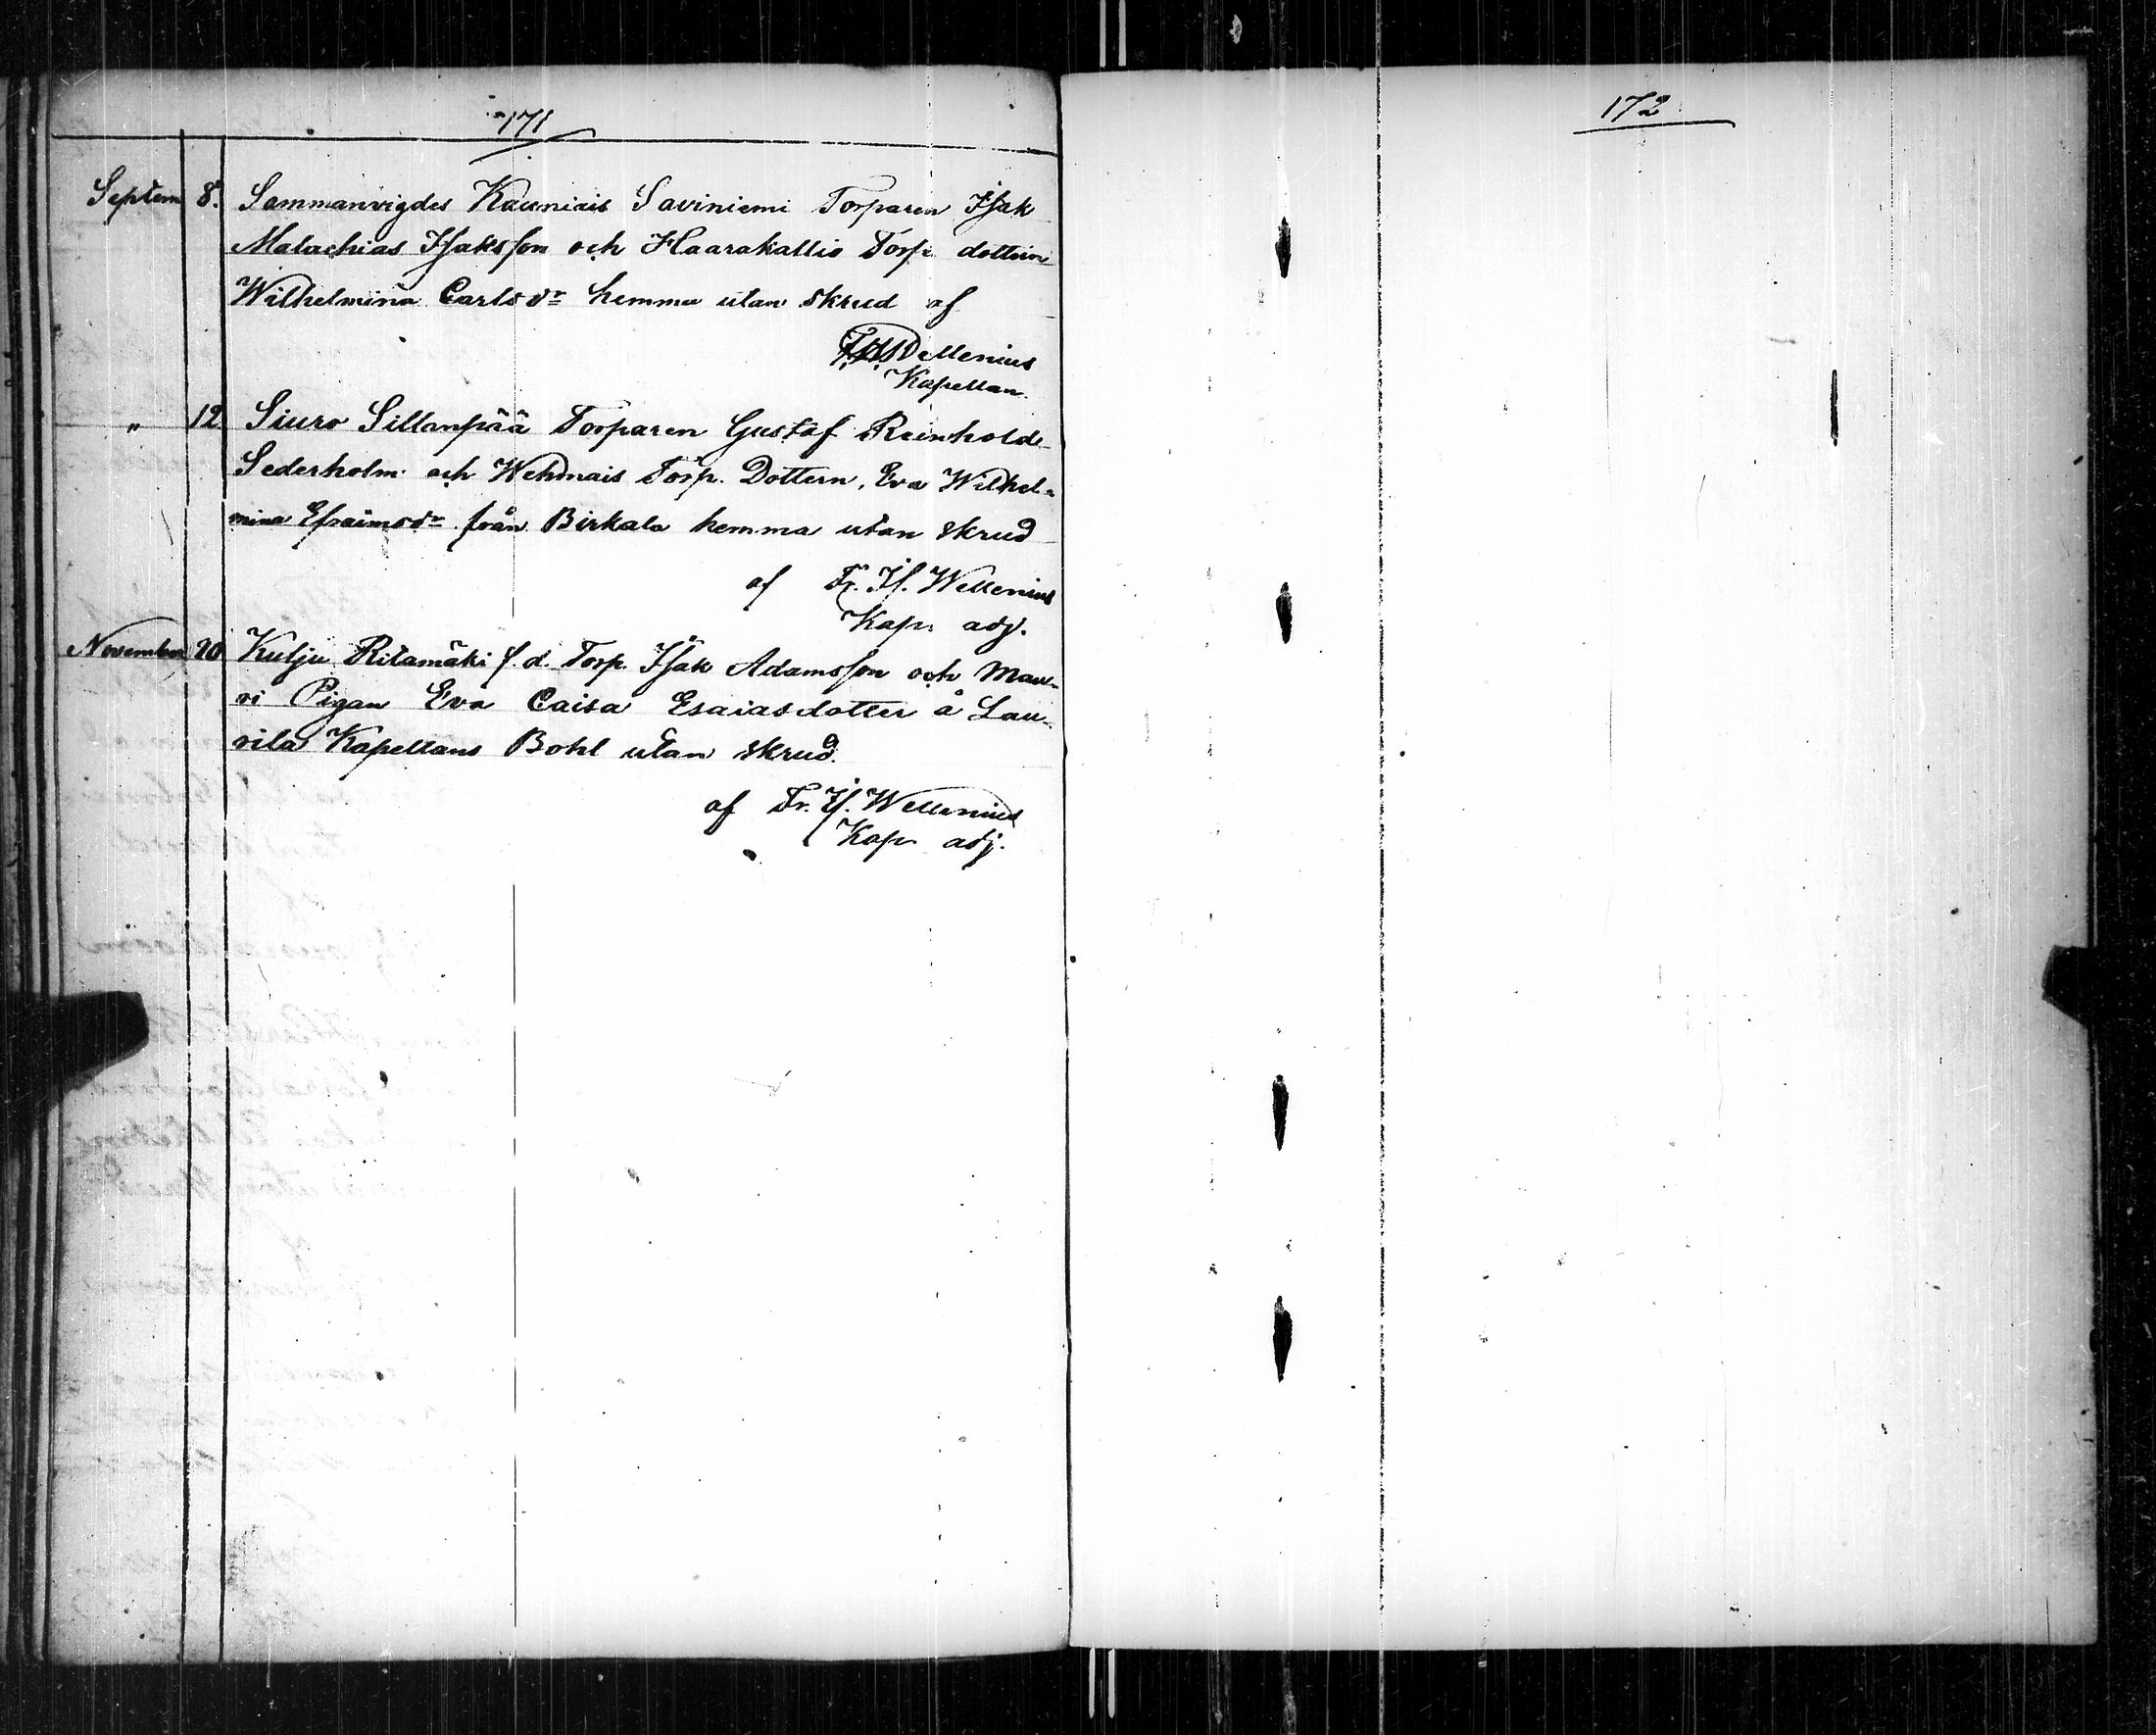 171
Septem 8. Sammanvigdes Kauniais Saviniemi Torparen Isak
Malachias Isaksson och Haarakallio Torp. dottern
Wilhelmina Carlsdr hemma utan skrud af
Wellenius
Kapellan.
" 12 Siuro Sillanpää Torparen Gustaf Reinhold
Sederholm och Wehmais Torp. Dottern, Eva Wilhel-
mina Efraimsdr från Birkala hemma utan skrud
af Fr. If. Wellenius
Kap. adj.
November 20 Kulju Ritamäki f.d. Torp. Isak Adamsson och Mau-
ri Pigan Eva Caisa Esaiasdotter å Lau-
rila Kapellans Bohl utan skrud.
af Fr. If. Wellenius
Kap. adj.
172